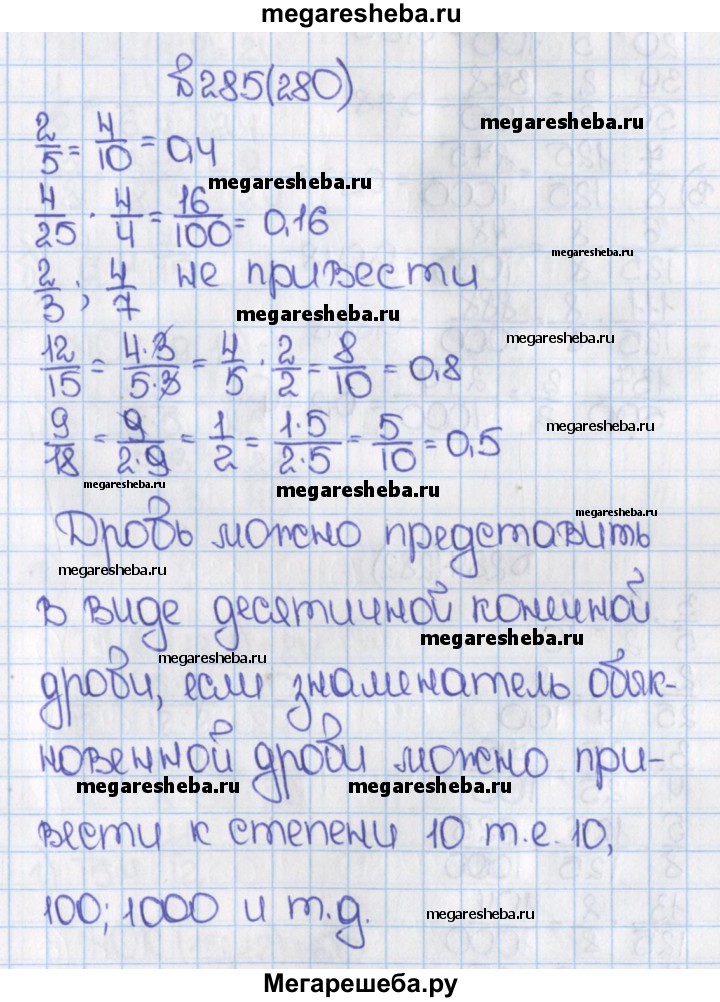 megaresheba.ru
№285(280)
2/5 = 4/10 = 0,4
megaresheba.ru
megaresheba.ru
4/25 · 4/4 = 16/100 = 0,16
megaresheba.ru
2/3 ; 4/7 не привести
megaresheba.ru
megaresheba.ru
12/15 = 4·3/5·3 = 4/5 · 2/2 = 8/10 = 0,8
megaresheba.ru
9/18 = 9/2·9 = 1/2 = 1·5/2·5 = 5/10 = 0,5
megaresheba.ru
megaresheba.ru
megaresheba.ru
Дробь можно представить
megaresheba.ru
в виде десятичной конечной
megaresheba.ru
megaresheba.ru
дроби, если знаменатель обык-
новенной дроби можно при-
megaresheba.ru
megaresheba.ru
вести к степени 10 т.е. 10,
100; 1000 и т.д.
megaresheba.ru
Мегарешеба.ру